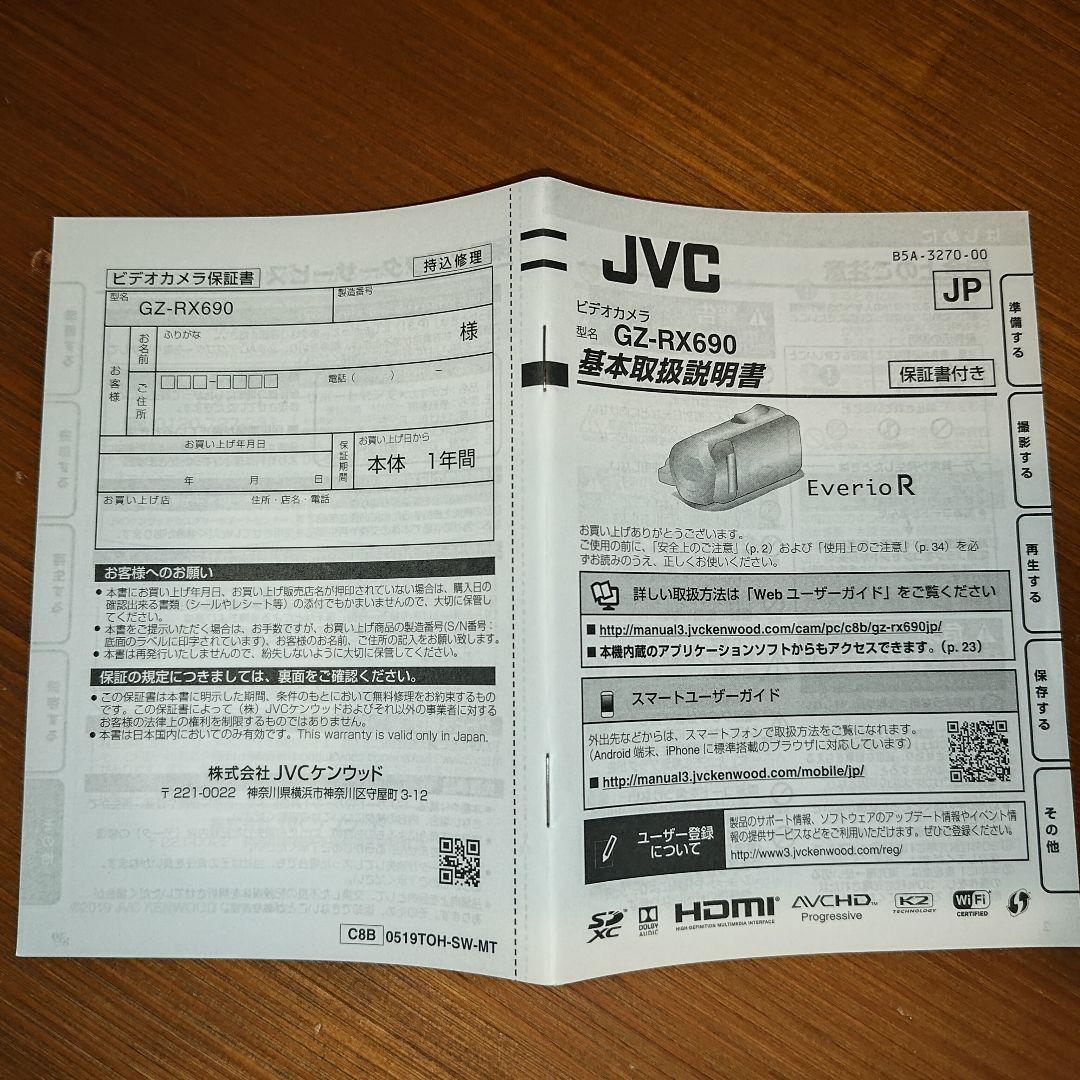 ビデオカメラ保証書
持込修理
型名
GZ-RX690
製造番号
お客様
お名前
ふりがな
様
ご住所
電話（　　　）　　－
お買い上げ年月日
年　月　日
保証期間
お買い上げ日から
本体　1年間
お買い上げ店
住所・店名・電話
お客様へのお願い
● 本書にお買い上げ年月日、お買い上げ販売店名が押印されていない場合は、購入日の
確認出来る書類（シールやレシート等）の添付でもかまいませんので、大切に保管し
てください。
● 本書をご提示いただく場合は、お手数ですが、お買い上げ商品の製造番号(S/N番号：
底面のラベルに印字されています)、お客様のお名前、ご住所の記入をお願い致します。
● 本書は再発行いたしませんので、紛失しないように大切に保管してください。
保証の規定につきましては、裏面をご確認ください。
● この保証書は本書に明示した期間、条件のもとにおいて無料修理をお約束するもの
です。この保証書によって（株）JVCケンウッドおよびそれ以外の事業者に対する
お客様の法律上の権利を制限するものではありません。
● 本書は日本国内においてのみ有効です。This warranty is valid only in Japan.
株式会社 JVCケンウッド
〒221-0022　神奈川県横浜市神奈川区守屋町 3-12
C8B 0519TOH-SW-MT
JVC
B5A-3270-00
JP
ビデオカメラ
型名 GZ-RX690
基本取扱説明書
保証書付き
Everio R
お買い上げありがとうございます。
ご使用の前に、「安全上のご注意」(p. 2）および「使用上のご注意」（p. 34）を必
ずお読みのうえ、正しくお使いください。
詳しい取扱方法は「Web ユーザーガイド」をご覧ください
■ http://manual3.jvckenwood.com/cam/pc/c8b/gz-rx690jp/
■ 本機内蔵のアプリケーションソフトからもアクセスできます。(p. 23)
スマートユーザーガイド
外出先などからは、スマートフォンで取扱方法をご覧になれます。
（Android 端末、iPhone に標準搭載のブラウザに対応しています）
■ http://manual3.jvckenwood.com/mobile/jp/
ユーザー登録
について
製品のサポート情報、ソフトウェアのアップデート情報やイベント情
報の提供サービスなどをご利用いただけます。ぜひご登録ください。
http://www3.jvckenwood.com/reg/
SD XC
DOLBY AUDIO
HDMI
HIGH-DEFINITION MULTIMEDIA INTERFACE
AVCHD
Progressive
K2
TECHNOLOGY
Wi Fi
CERTIFIED
準備する
撮影する
再生する
保存する
その他